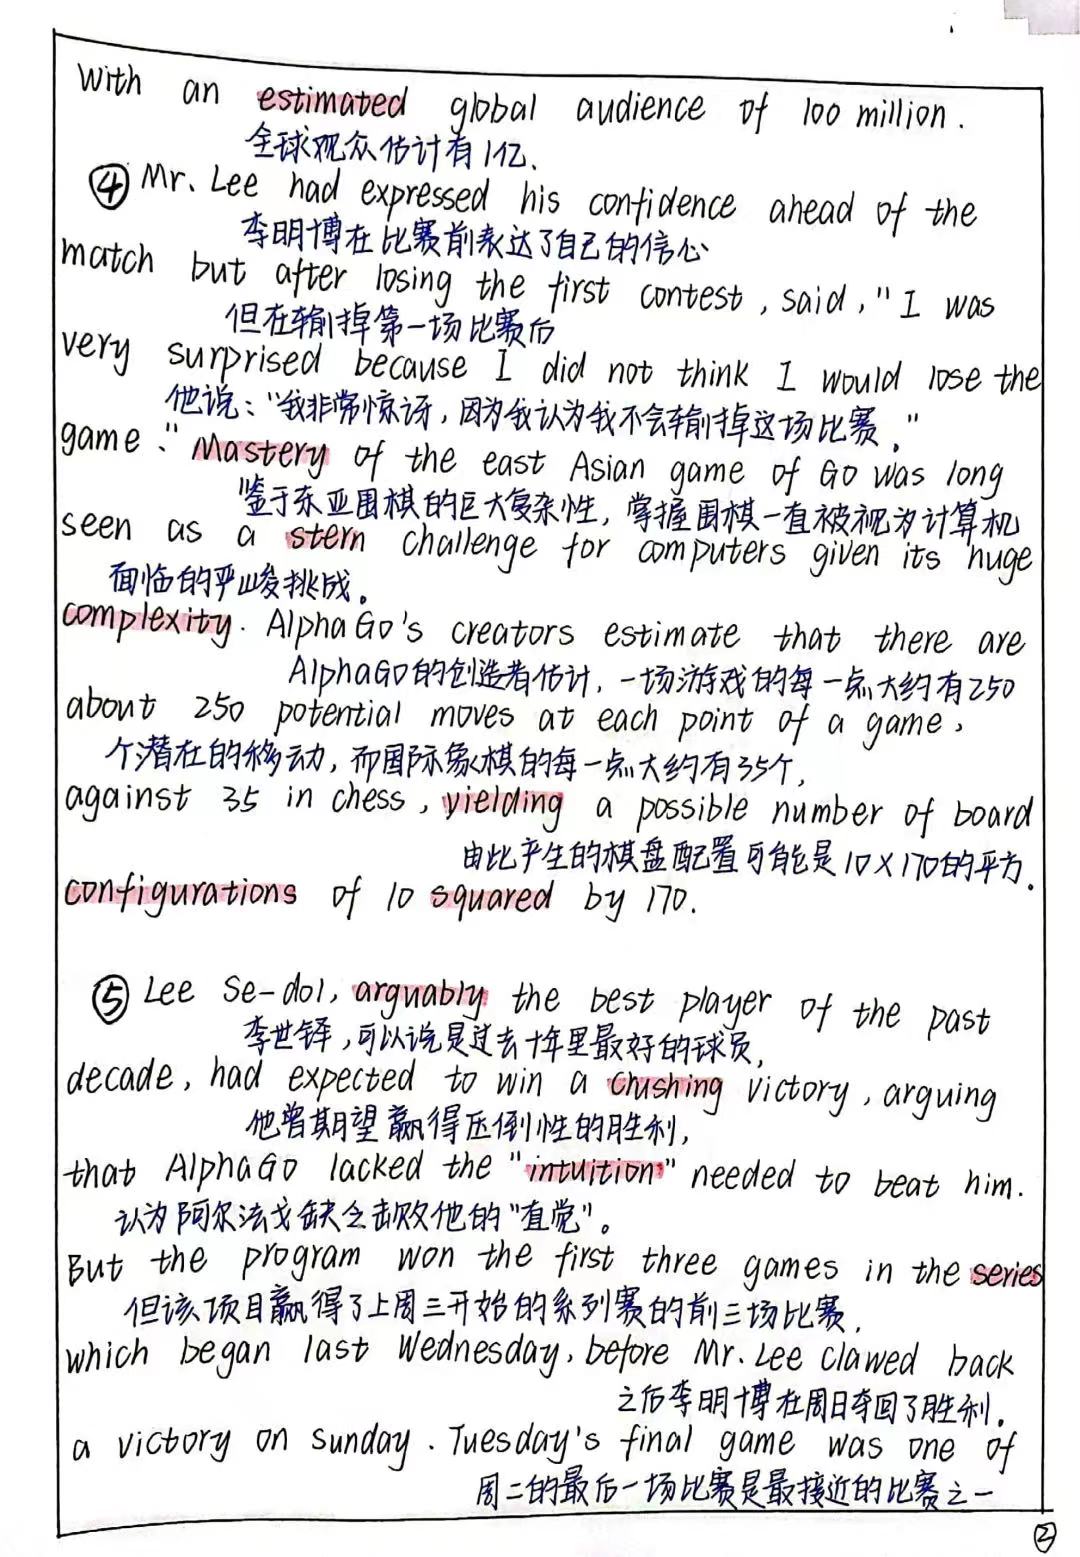 With an estimated global audience of 100 million.
全球观众估计有1亿.
④ Mr. Lee had expressed his confidence ahead of the
李明博在比赛前表达了自己的信心
match but after losing the first contest, said, "I was
但在输掉第一场比赛后
very surprised because I did not think I would lose the
他说:"我非常惊讶,因为我认为我不会输掉这场比赛。"
game." Mastery of the east Asian game of Go was long
鉴于东亚围棋的巨大复杂性,掌握围棋一直被视为计算机
seen as a stern challenge for computers given its huge
面临的严峻挑战。
complexity. AlphaGo's creators estimate that there are
AlphaGo的创造者估计,一场游戏的每一点大约有250
about 250 potential moves at each point of a game,
个潜在的移动,而国际象棋的每一点大约有35个,
against 35 in chess, yielding a possible number of board
由此产生的棋盘配置可能是10×170的平方.
configurations of 10 squared by 170.
⑤ Lee Se-dol, arguably the best player of the past
李世铎,可以说是过去十年里最好的球员,
decade, had expected to win a crushing victory, arguing
他曾期望赢得压倒性的胜利,
that AlphaGo lacked the "intuition" needed to beat him.
认为阿尔法戈缺乏击败他的"直觉"。
But the program won the first three games in the series
但该项目赢得了上周三开始的系列赛的前三场比赛,
which began last Wednesday, before Mr. Lee clawed back
之后李明博在周日夺回了胜利.
a victory on Sunday. Tuesday's final game was one of
周二的最后一场比赛是最接近的比赛之一
②